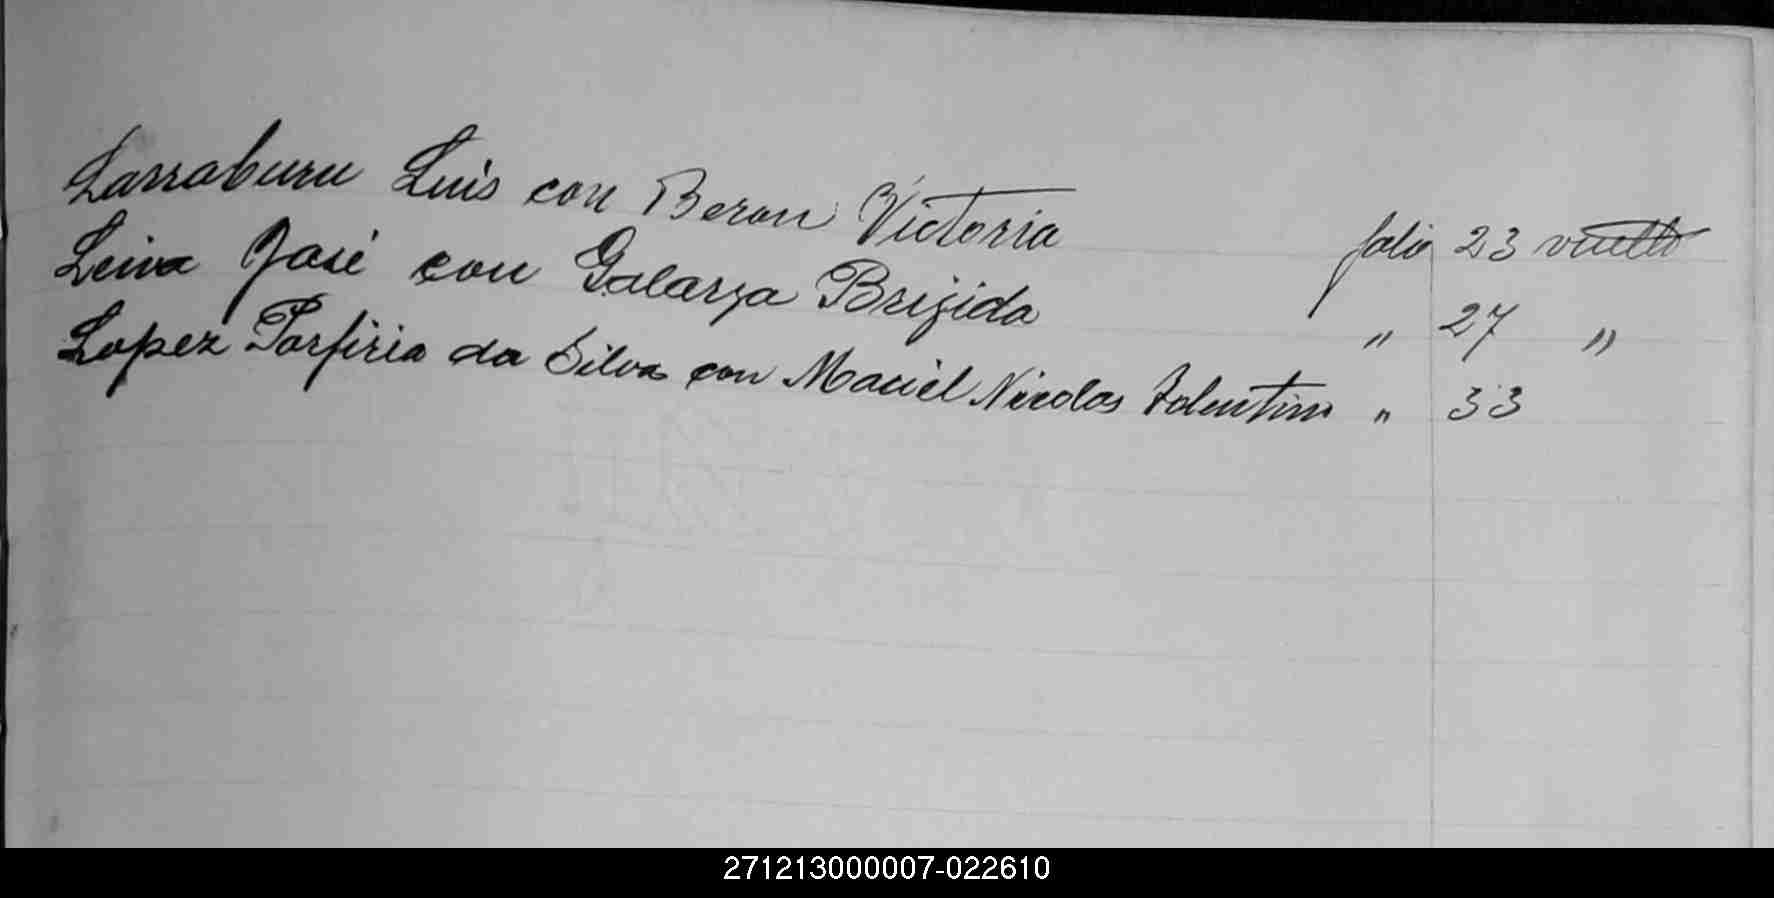 Larraburu Luis con Beron Victoria folio 23 vuelto
Leiva José con Galarza Brijida " 27 "
Lopez Porfiria da Silva con Maciel Nicolas Tolentino " 33
271213000007-022610